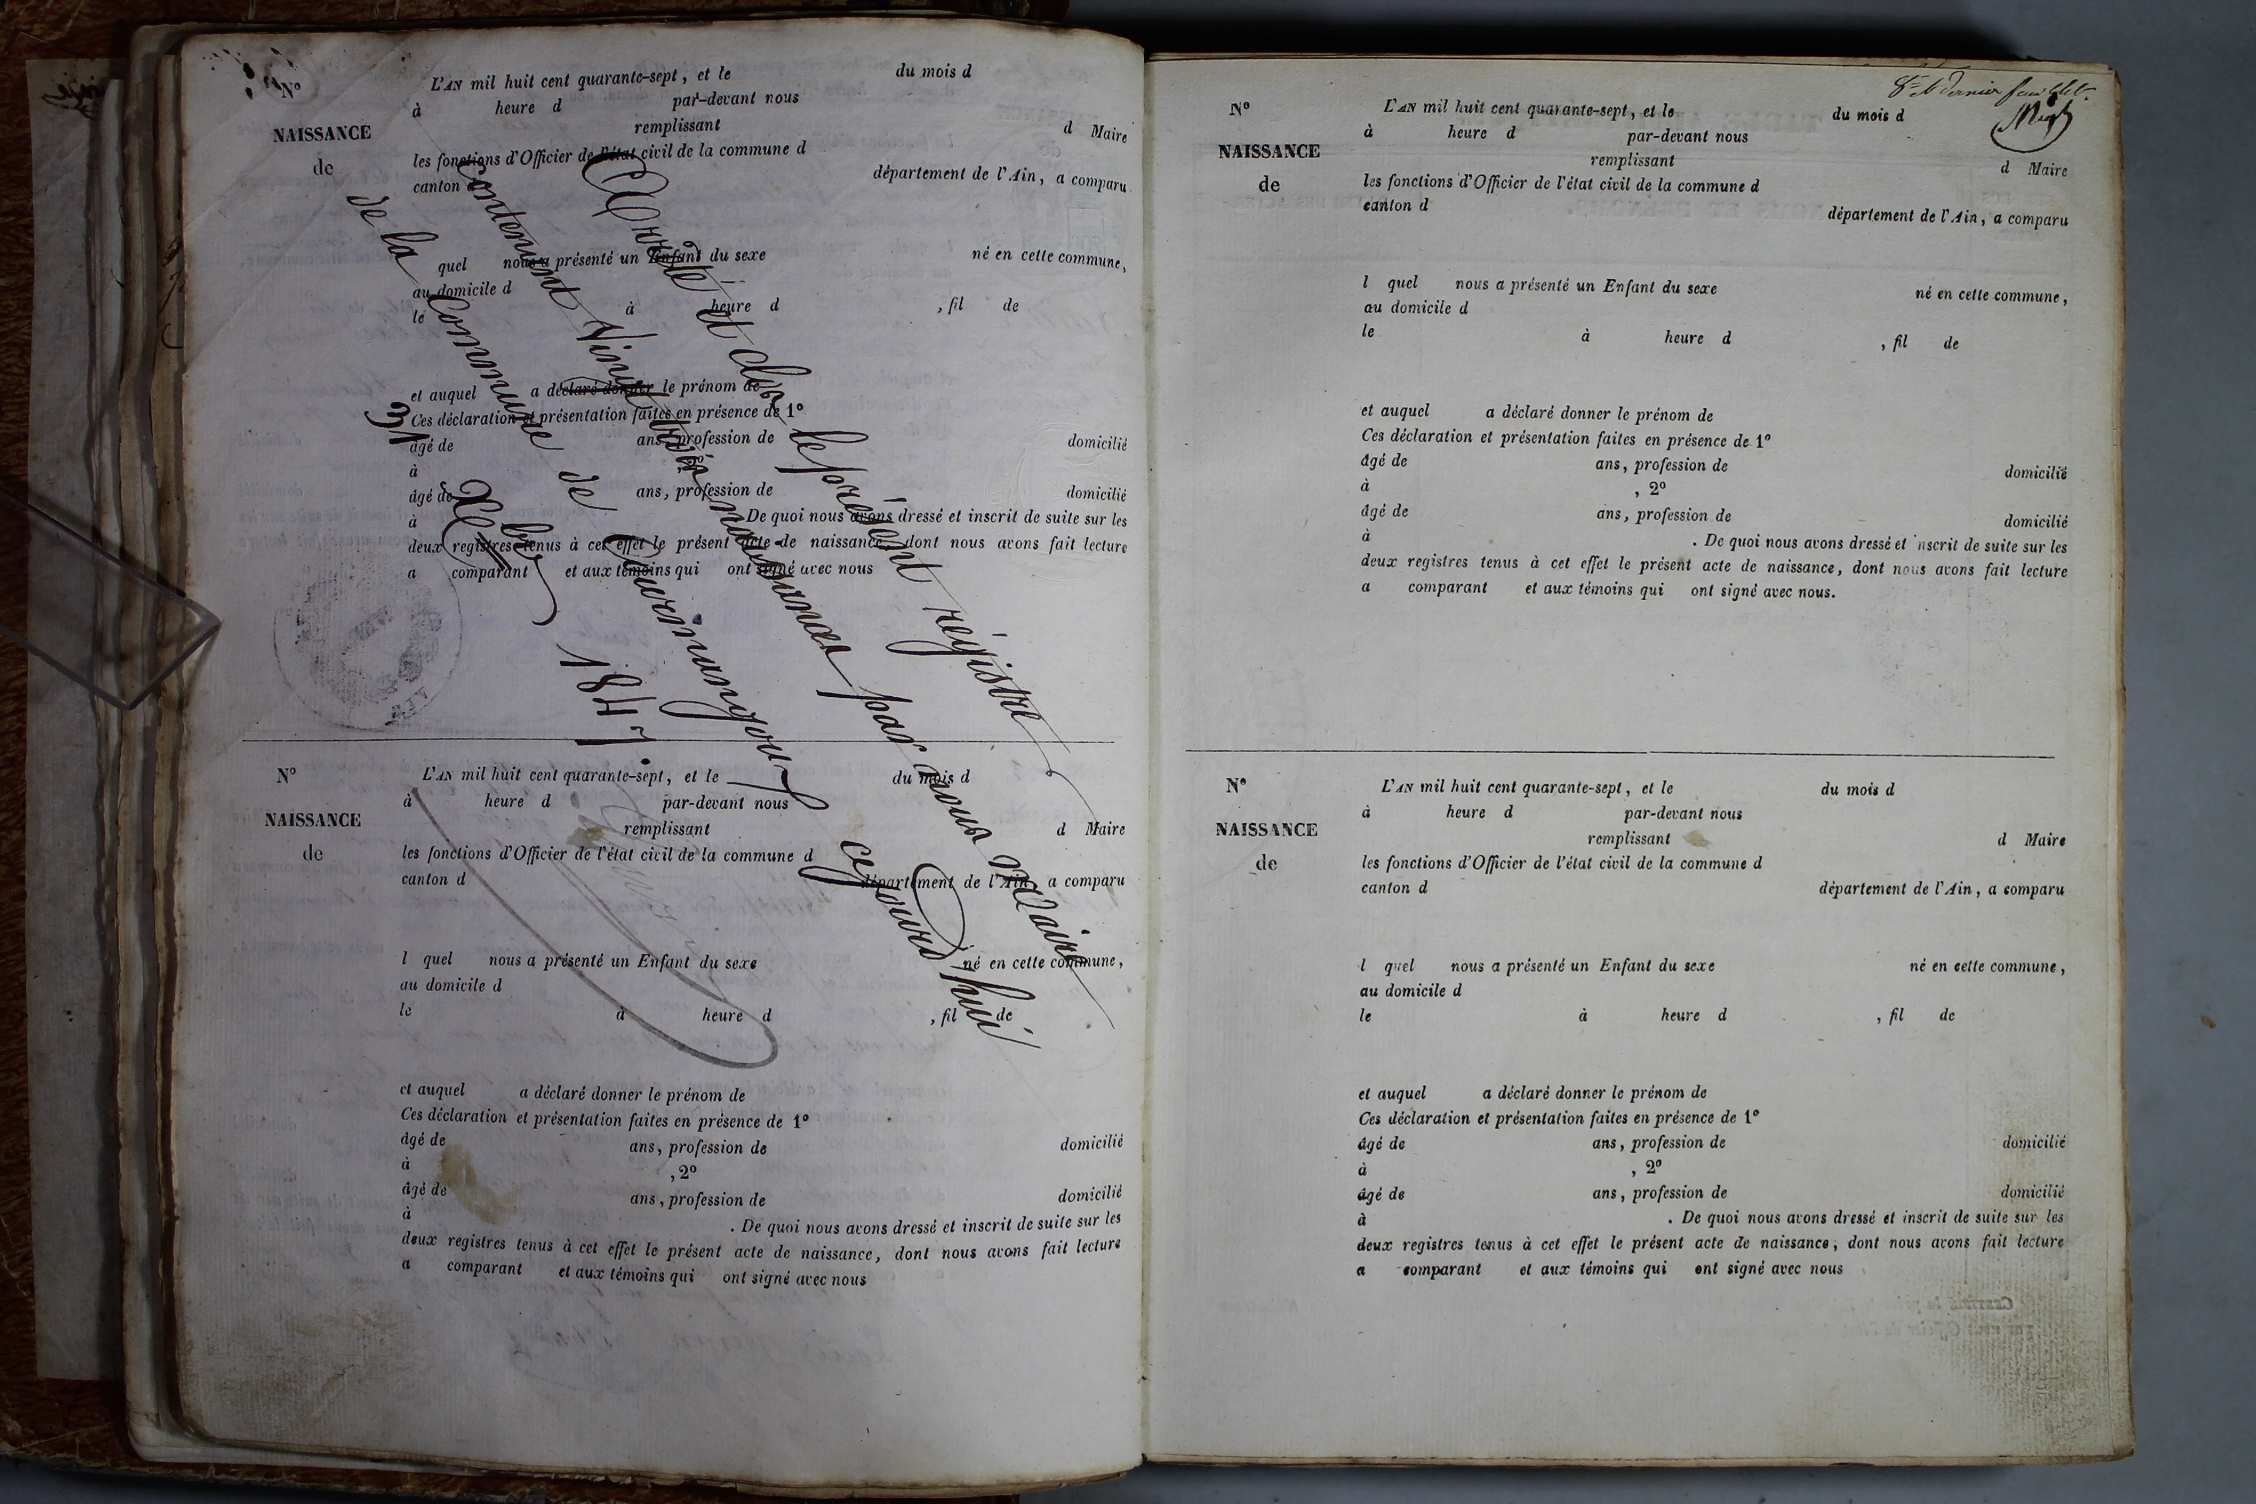 N°
NAISSANCE
de
L'AN mil huit cent quarante-sept, et le du mois d
à heure d par-devant nous
remplissant d Maire
les fonctions d'Officier de l'état civil de la commune d
canton d département de l'Ain, a comparu
quel nous a présenté un Enfant du sexe né en cette commune,
au domicile d
le à heure d , fil de
et auquel a déclaré donner le prénom de
Ces déclaration et présentation faites en présence de 1°
âgé de ans, profession de domicilié
à , 2°
âgé de ans, profession de domicilié
à . De quoi nous avons dressé et inscrit de suite sur les
deux registres tenus à cet effet le présent acte de naissance, dont nous avons fait lecture
a comparant et aux témoins qui ont signé avec nous
Arrêté et clos le présent régistre
contenant Vingt trois naissances par nous Maire
de la Commune de Curimangoux cejourd'hui
31 Xbre 1847
N°
NAISSANCE
de
L'AN mil huit cent quarante-sept, et le du mois d
à heure d par-devant nous
remplissant d Maire
les fonctions d'Officier de l'état civil de la commune d
canton d département de l'Ain, a comparu
l quel nous a présenté un Enfant du sexe né en cette commune,
au domicile d
le à heure d , fil de
et auquel a déclaré donner le prénom de
Ces déclaration et présentation faites en présence de 1°
âgé de ans, profession de domicilié
à , 2°
âgé de ans, profession de domicilié
à . De quoi nous avons dressé et inscrit de suite sur les
deux registres tenus à cet effet le présent acte de naissance, dont nous avons fait lecture
a comparant et aux témoins qui ont signé avec nous
dernier feuillet
N°
NAISSANCE
de
L'AN mil huit cent quarante-sept, et le du mois d
à heure d par-devant nous
remplissant d Maire
les fonctions d'Officier de l'état civil de la commune d
canton d département de l'Ain, a comparu
l quel nous a présenté un Enfant du sexe né en cette commune,
au domicile d
le à heure d , fil de
et auquel a déclaré donner le prénom de
Ces déclaration et présentation faites en présence de 1°
âgé de ans, profession de domicilié
à , 2°
âgé de ans, profession de domicilié
à . De quoi nous avons dressé et inscrit de suite sur les
deux registres tenus à cet effet le présent acte de naissance, dont nous avons fait lecture
a comparant et aux témoins qui ont signé avec nous.
N°
NAISSANCE
de
L'AN mil huit cent quarante-sept, et le du mois d
à heure d par-devant nous
remplissant d Maire
les fonctions d'Officier de l'état civil de la commune d
canton d département de l'Ain, a comparu
l quel nous a présenté un Enfant du sexe né en cette commune,
au domicile d
le à heure d , fil de
et auquel a déclaré donner le prénom de
Ces déclaration et présentation faites en présence de 1°
âgé de ans, profession de domicilié
à , 2°
âgé de ans, profession de domicilié
à . De quoi nous avons dressé et inscrit de suite sur les
deux registres tenus à cet effet le présent acte de naissance, dont nous avons fait lecture
a comparant et aux témoins qui ont signé avec nous